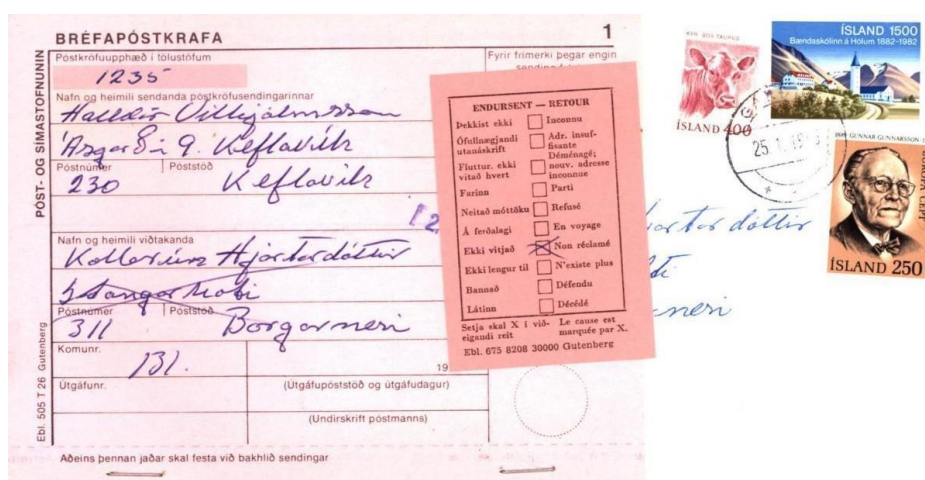 BRÉFAPÓSTKRAFA 1
Póstkröfuupphæð í tölustöfum
Fyrir frímerki þegar engin
1235
Nafn og heimili sendanda póstkröfusendingarinnar
Halldór Vilhjálmsson
9. Keflavík
Póstnúmer Póststöð
230 Keflavík
Nafn og heimili viðtakanda
Hjartardóttir
Póstnúmer Póststöð
311 Borgarnesi
Komunr.
131.
19
Útgáfunr.
(Útgáfupóststöð og útgáfudagur)
(Undirskrift póstmanns)
Aðeins þennan jaðar skal festa við bakhlið sendingar
PÓST- OG SÍMASTOFNUNIN
Ebl. 505 T 26 Gutenberg
ENDURSENT — RETOUR
Þekkist ekki Inconnu
Ófullnægjandi utanáskrift Adr. insuffisante
Fluttur, ekki vitað hvert Déménagé; nouv. adresse inconnue
Farinn Parti
Neitað móttöku Refusé
Á ferðalagi En voyage
Ekki vitjað X Non réclamé
Ekki lengur til N'existe plus
Bannað Défendu
Látinn Décédé
Setja skal X í við- Le cause est
eigandi reit marquée par X.
Ebl. 675 8208 30000 Gutenberg
KÝR BOS TAURUS
ÍSLAND 400
ÍSLAND 1500
Bændaskólinn á Hólum 1882-1982
GUNNAR GUNNARSSON
EUROPA CEPT
ÍSLAND 250
25.1.
dóttir